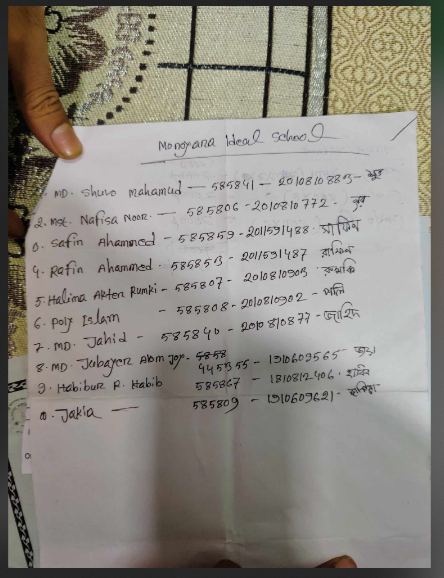 Monoyana Ideal School
MD. Shuvo Mahamud — 585841 — 2010810883 - শুভ
2. Mst. Nafisa Noor. — 585806 - 2010810772.
3. Safin Ahammed - 585859 - 2011591488 সাফিন
4. Rafin Ahammed - 585853 - 2011591487 রাফিন
5. Halima Akter Rumki - 585807 - 2010810903 রুমকি
6. Poly Islam - 585808 - 2010810902 - পলি
7. MD. Jahid - 585840 - 2010810877 - জাহিদ
8. MD. Jubayer Alom Joy - 5858
445355 - 1910609565 - জয়
9. Habibur R. Habib 585867 - 1810812406. হাবিব
10. Jakia — 585809 - 1910609621 - জাকিয়া